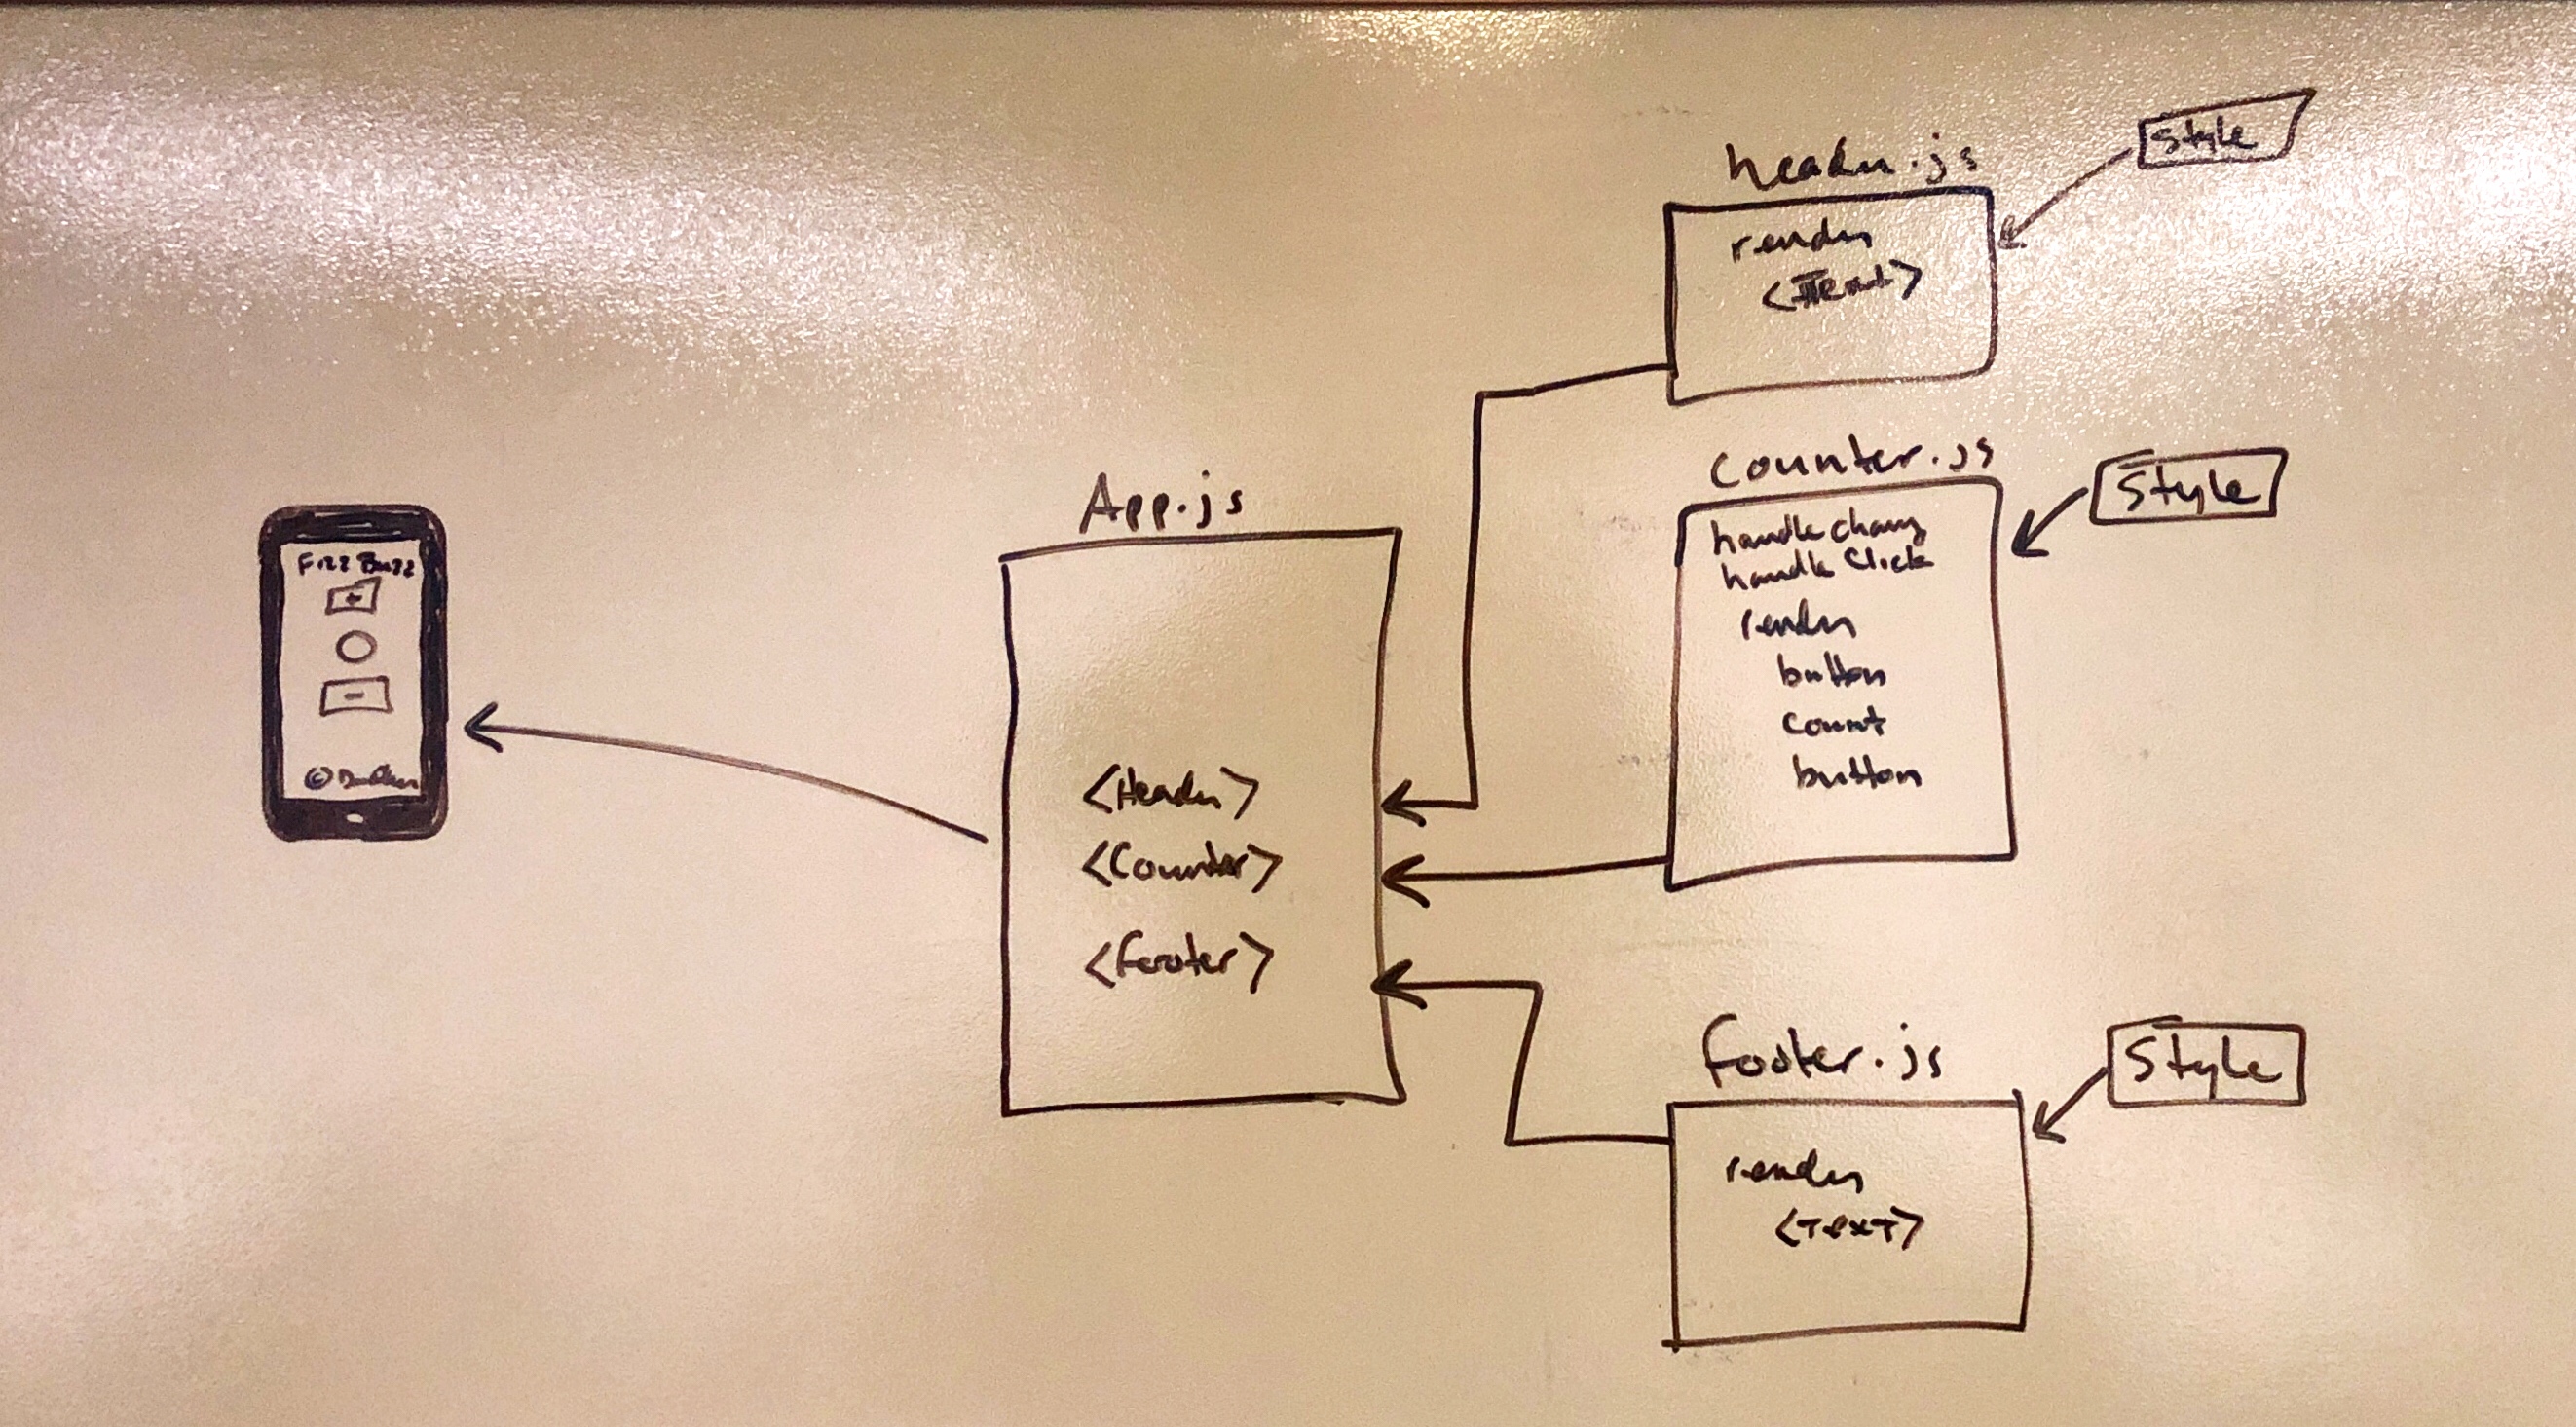 Fizz Buzz
+
-
©
App.js
<Header>
<Counter>
<Footer>
header.js
render
<Text>
Style
counter.js
handle change
handle Click
render
button
count
button
Style
footer.js
render
<TexT>
Style